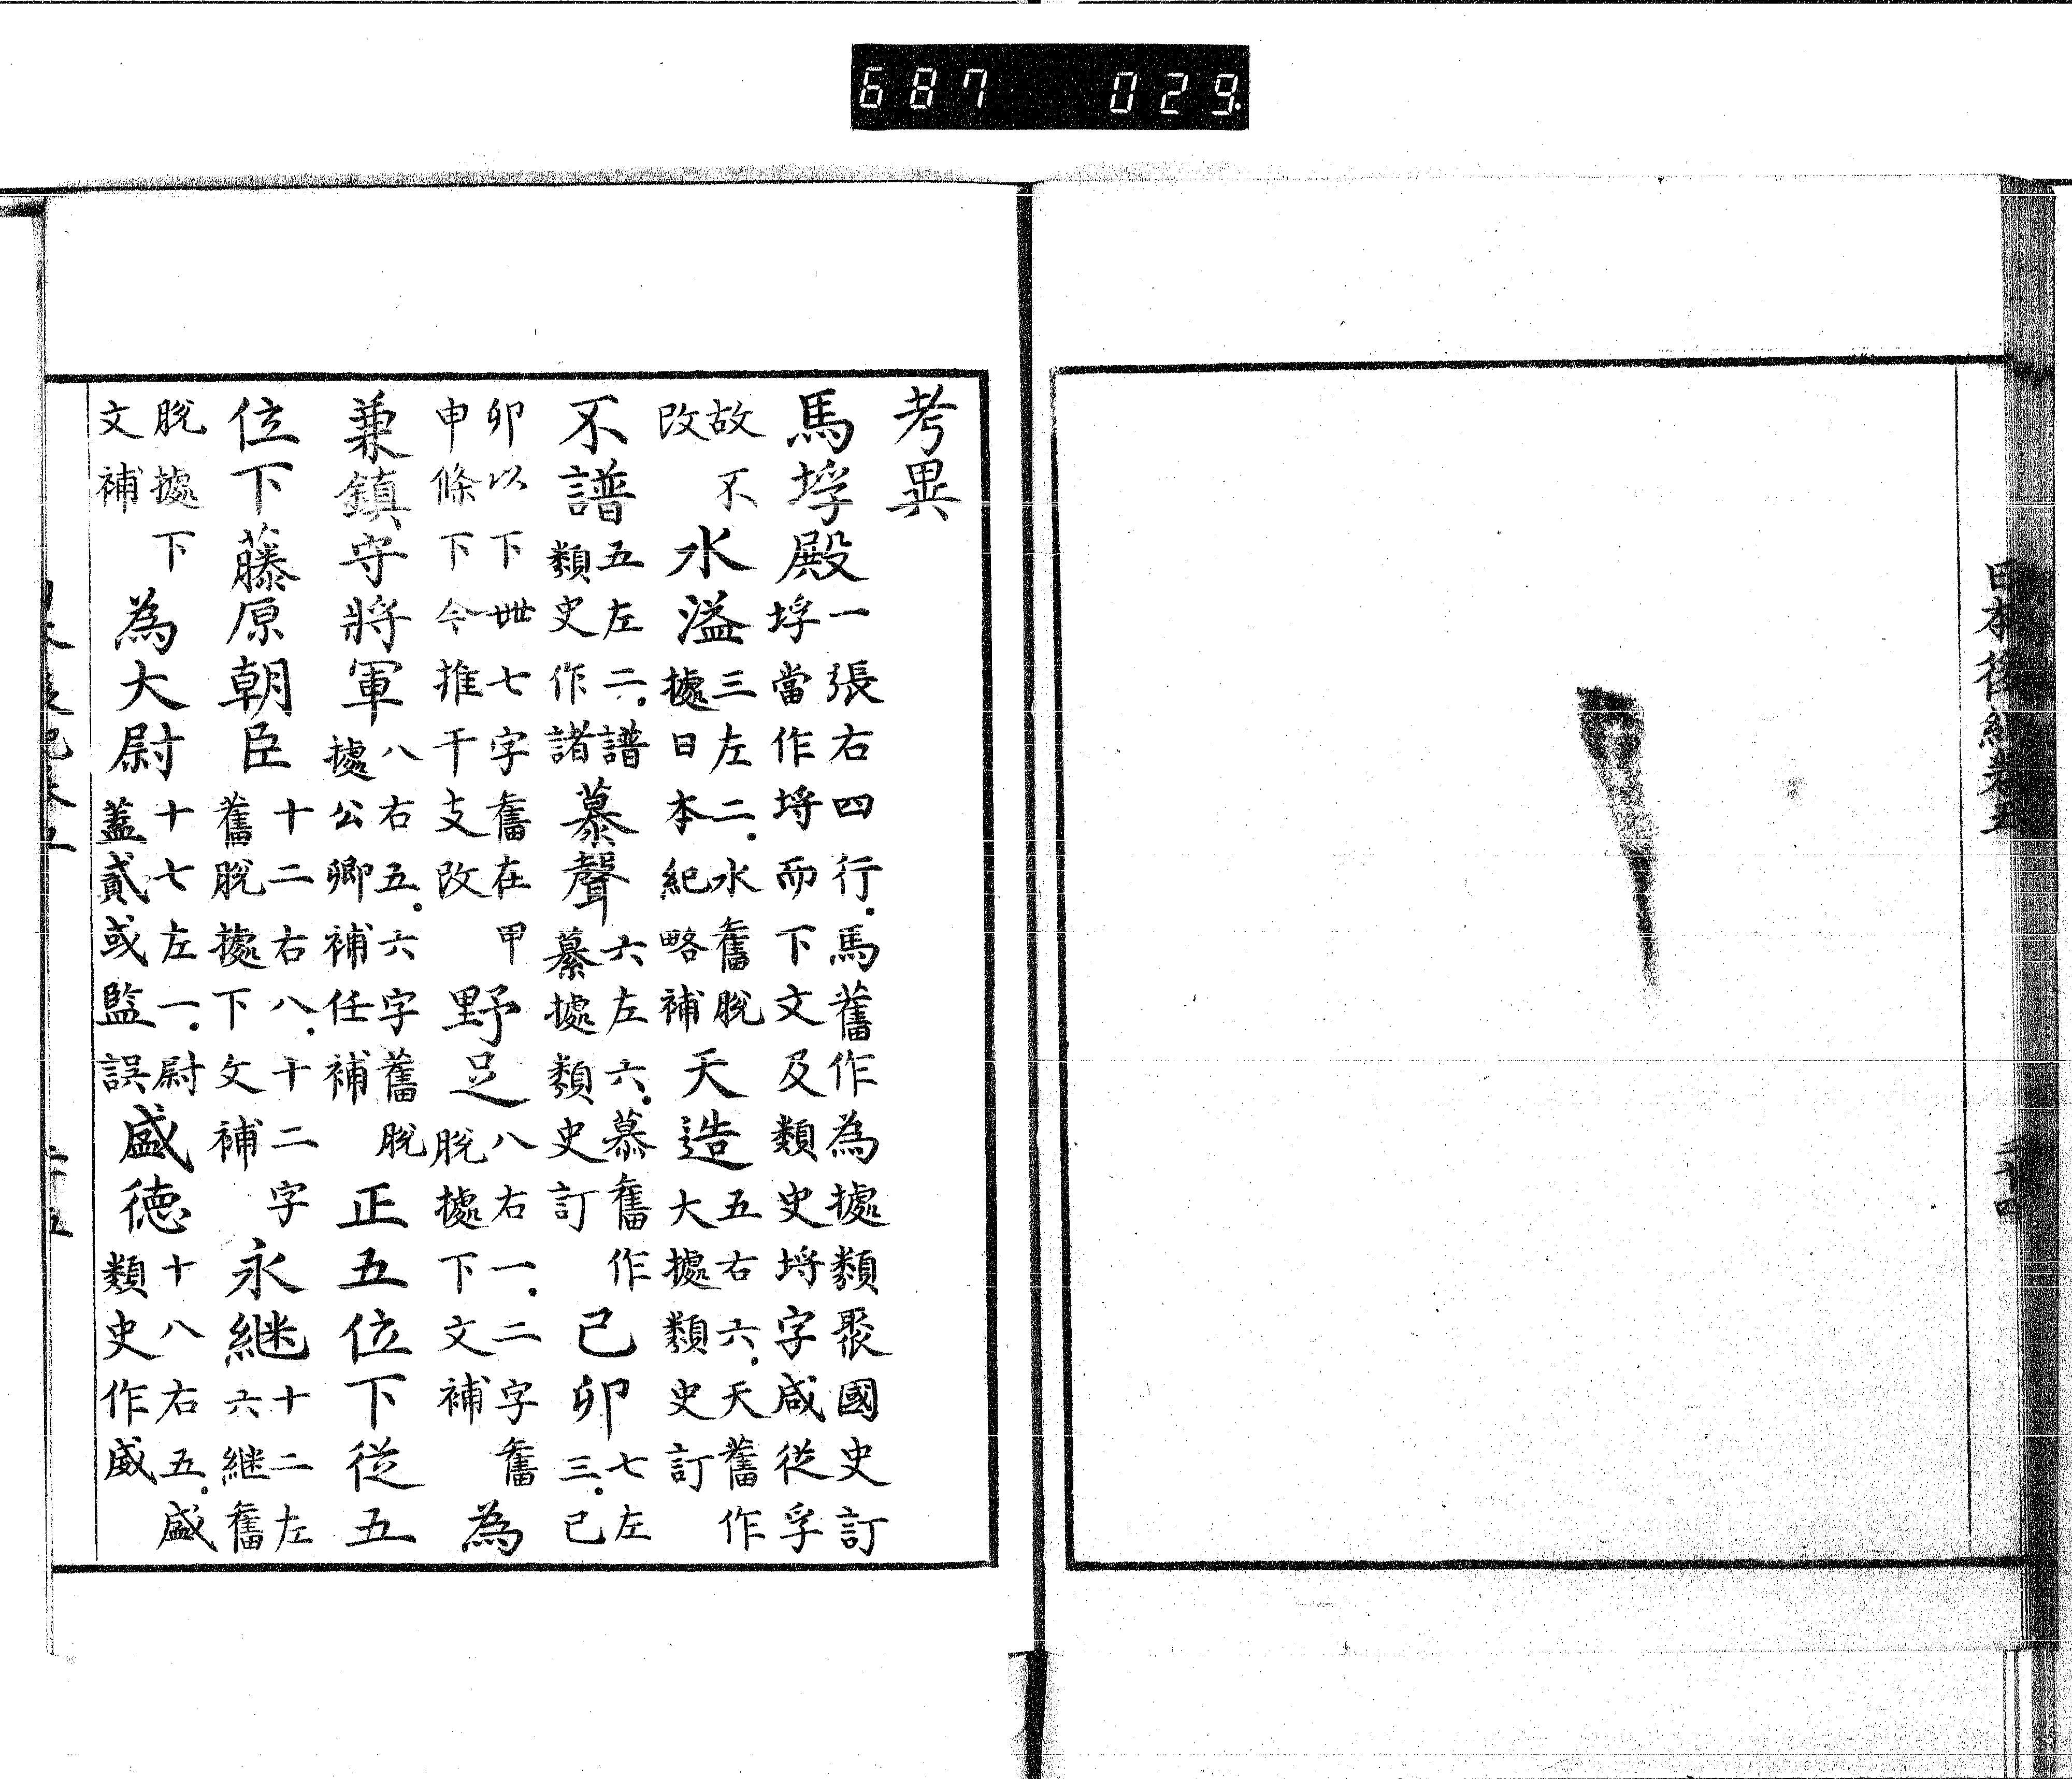 687 029
日本後紀卷五
二十四
考異
馬垺殿
一張右四行。馬舊作為據類聚國史訂
垺當作埒而下文及類史埒字咸從孚
故不
改
水溢
三左二。水舊脫
據日本紀略補
天造
五右六。天舊作
大據類史訂
不譜
五左二。譜
類史作諸
慕聲
六左六。慕舊作
據類史訂
己卯
七左
三。己
卯以下卌七字舊在甲
申條下今推干支改
野足
八右一。二字舊
脫據下文補
為
兼鎮守將軍
八右五。六字舊脫
據公卿補任補
正五位下從五
位下藤原朝臣
十二右八。十二字
舊脫據下文補
永継
十二左
六継舊
脫據下
文補
為大尉
十七左一。尉
蓋貳或監誤
盛徳
十八右五。盛
類史作威